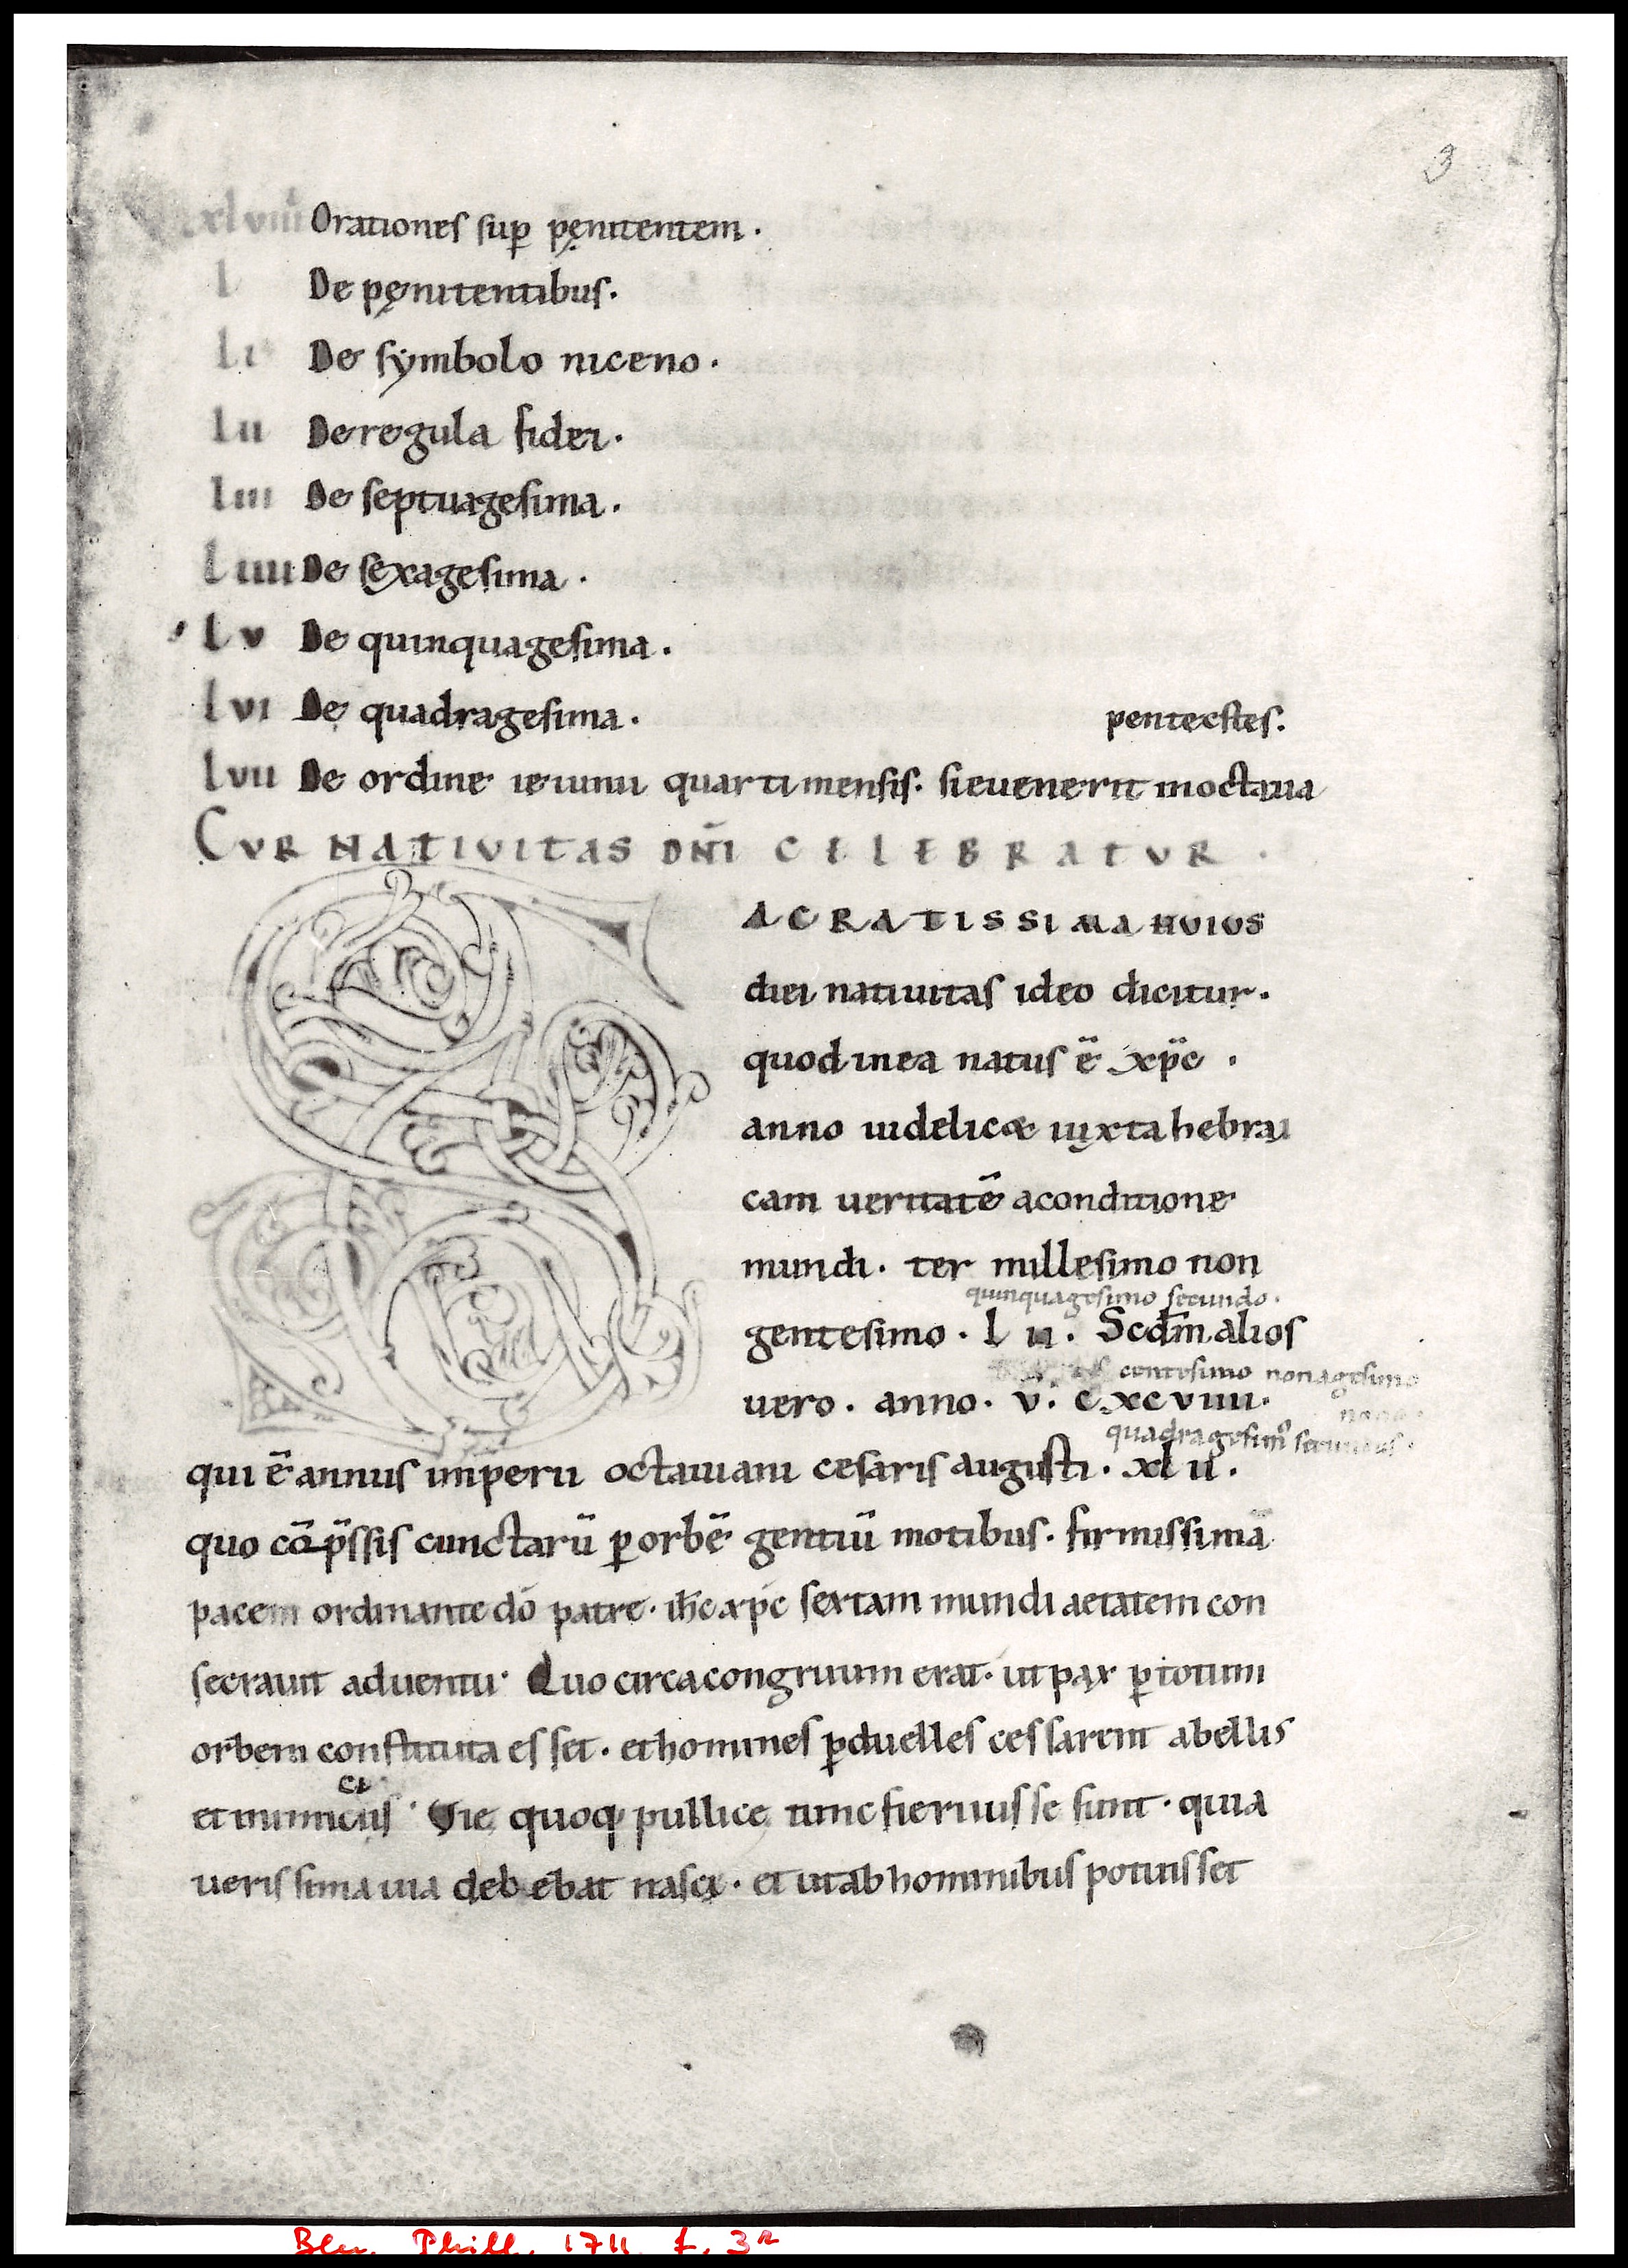 3
xlviiii Orationes sup̄ pęnitentem.
l De pęnitentibus.
li De sẏmbolo niceno.
lii De regula fidei.
liii De septuagesima.
liiii De sexagesima.
lv De quinquagesima.
lvi De quadragesima. pentecstes.
lvii De ordine ieiunii quarti mensis. si euenerit in octaua
CVR NATIVITAS DN̄I CELEBRATVR.
SACRATISSIMA HVIVS
diei natiuitas ideo dicitur.
quod in ea natus ē xp̄c.
anno uidelicæ iuxta hebrai
cam ueritatē a conditione
mundi. ter millesimo non
quinquagesimo secundo.
gentesimo. l ii. Scdm̄ alios
centesimo nonagesimo
uero. anno. v. c xcviiii.
nono.
quadragesimº secundus.
qui ē annus imperii octauiani cesaris augusti. xl ii.
quo cōp̄ssis cunctarū p̄ orbē gentiū motibus. firmissimā
pacem ordinante dō patre. ih̄c xp̄c sextam mundi aetatem con
secrauit aduentu. Quo circa congruum erat. ut pax p̄ totum
orbem constituta esset. et homines p̄duelles cessarent a bellis
ci
et inimicitiis. Vię quoq; pullicę tunc fieri iussę sunt. quia
uerissima uia debebat nasci. et ut ab hominibus potuisset
Bln. Phill. 1711, f. 3r